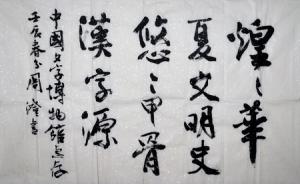 煌〻華
夏文明史
悠〻甲骨
漢字源
中國文字博物館惠存
壬辰春月周澄書